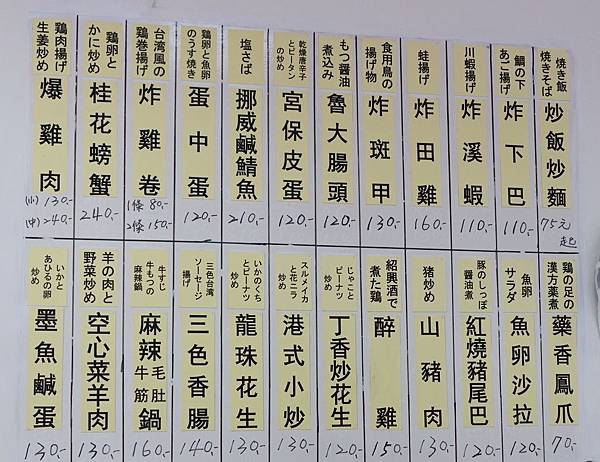 焼き飯
焼きそば
炒飯炒麵
75元
起
鯛の下
あご揚げ
炸下巴
110.-
川蝦揚げ
炸溪蝦
110.-
蛙揚げ
炸田雞
160.-
食用鳥の
揚げ物
炸斑甲
130.-
もつ醤油
煮込み
魯大腸頭
120.-
乾燥唐辛子
とピータン
の炒め
宮保皮蛋
120.-
塩さば
挪威鹹鯖魚
210.-
鶏卵と魚卵
のうす焼き
蛋中蛋
120.-
台湾風の
鶏巻揚げ
炸雞卷
1條 80.-
2條 150.-
鶏卵と
かに炒め
桂花螃蟹
240.-
鶏肉揚げ
生姜炒め
爆雞肉
(小) 130.-
(中) 240.-
鶏の足の
漢方薬煮
藥香鳳爪
70.-
魚卵
サラダ
魚卵沙拉
120.-
豚のしっぽ
醤油煮
紅燒豬尾巴
120.-
猪炒め
山豬肉
130.-
紹興酒で
煮た鶏
醉雞
150.-
じゃこと
ピーナツ
炒め
丁香炒花生
120.-
スルメイカ
と花ニラ
炒め
港式小炒
130.-
いかのくち
とピーナツ
炒め
龍珠花生
130.-
三色台湾
ソーセージ
揚げ
三色香腸
140.-
牛すじ
牛もつの
麻辣鍋
麻辣牛筋毛肚鍋
160.-
羊の肉と
野菜炒め
空心菜羊肉
130.-
いかと
あひるの卵
炒め
墨魚鹹蛋
130.-